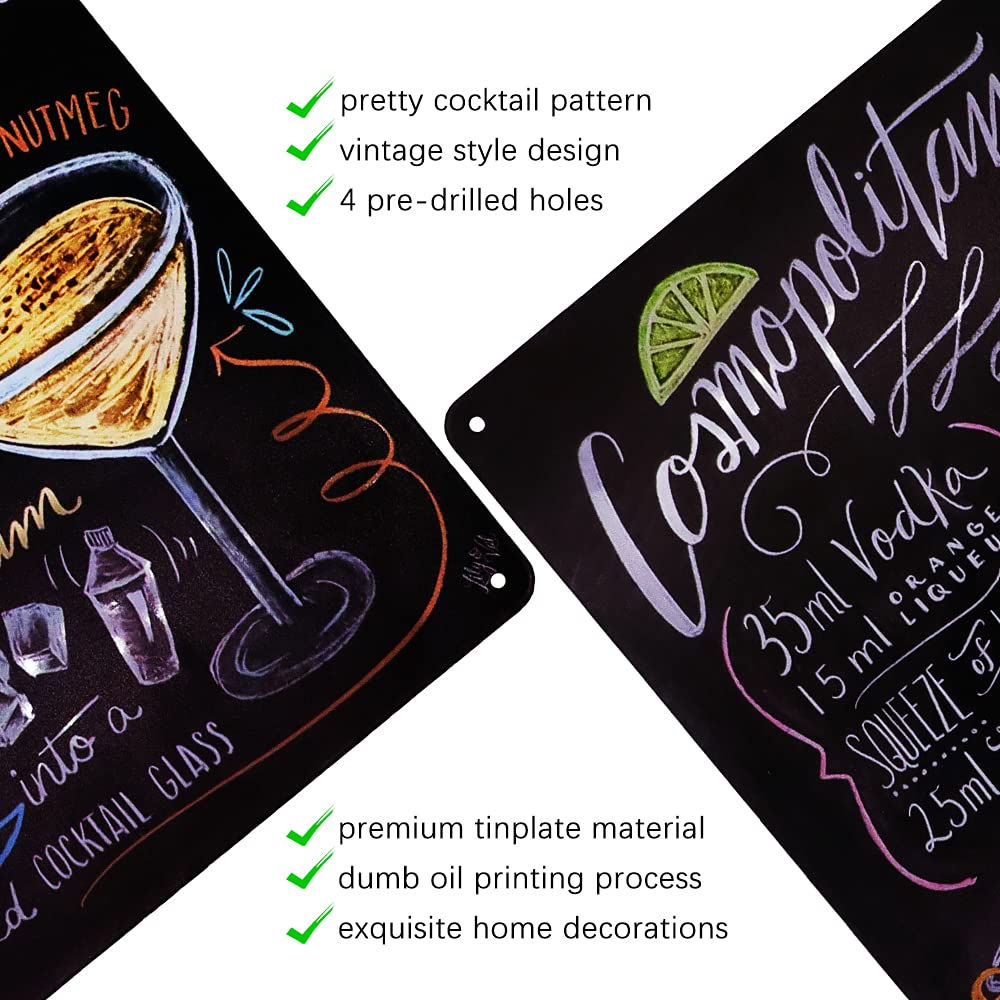 pretty cocktail pattern
vintage style design
4 pre-drilled holes
NUTMEG
into a
COCKTAIL GLASS
Cosmopolitan
35ml Vodka
15ml ORANGE
LIQUEU
SQUEEZE of
25ml
premium tinplate material
dumb oil printing process
exquisite home decorations